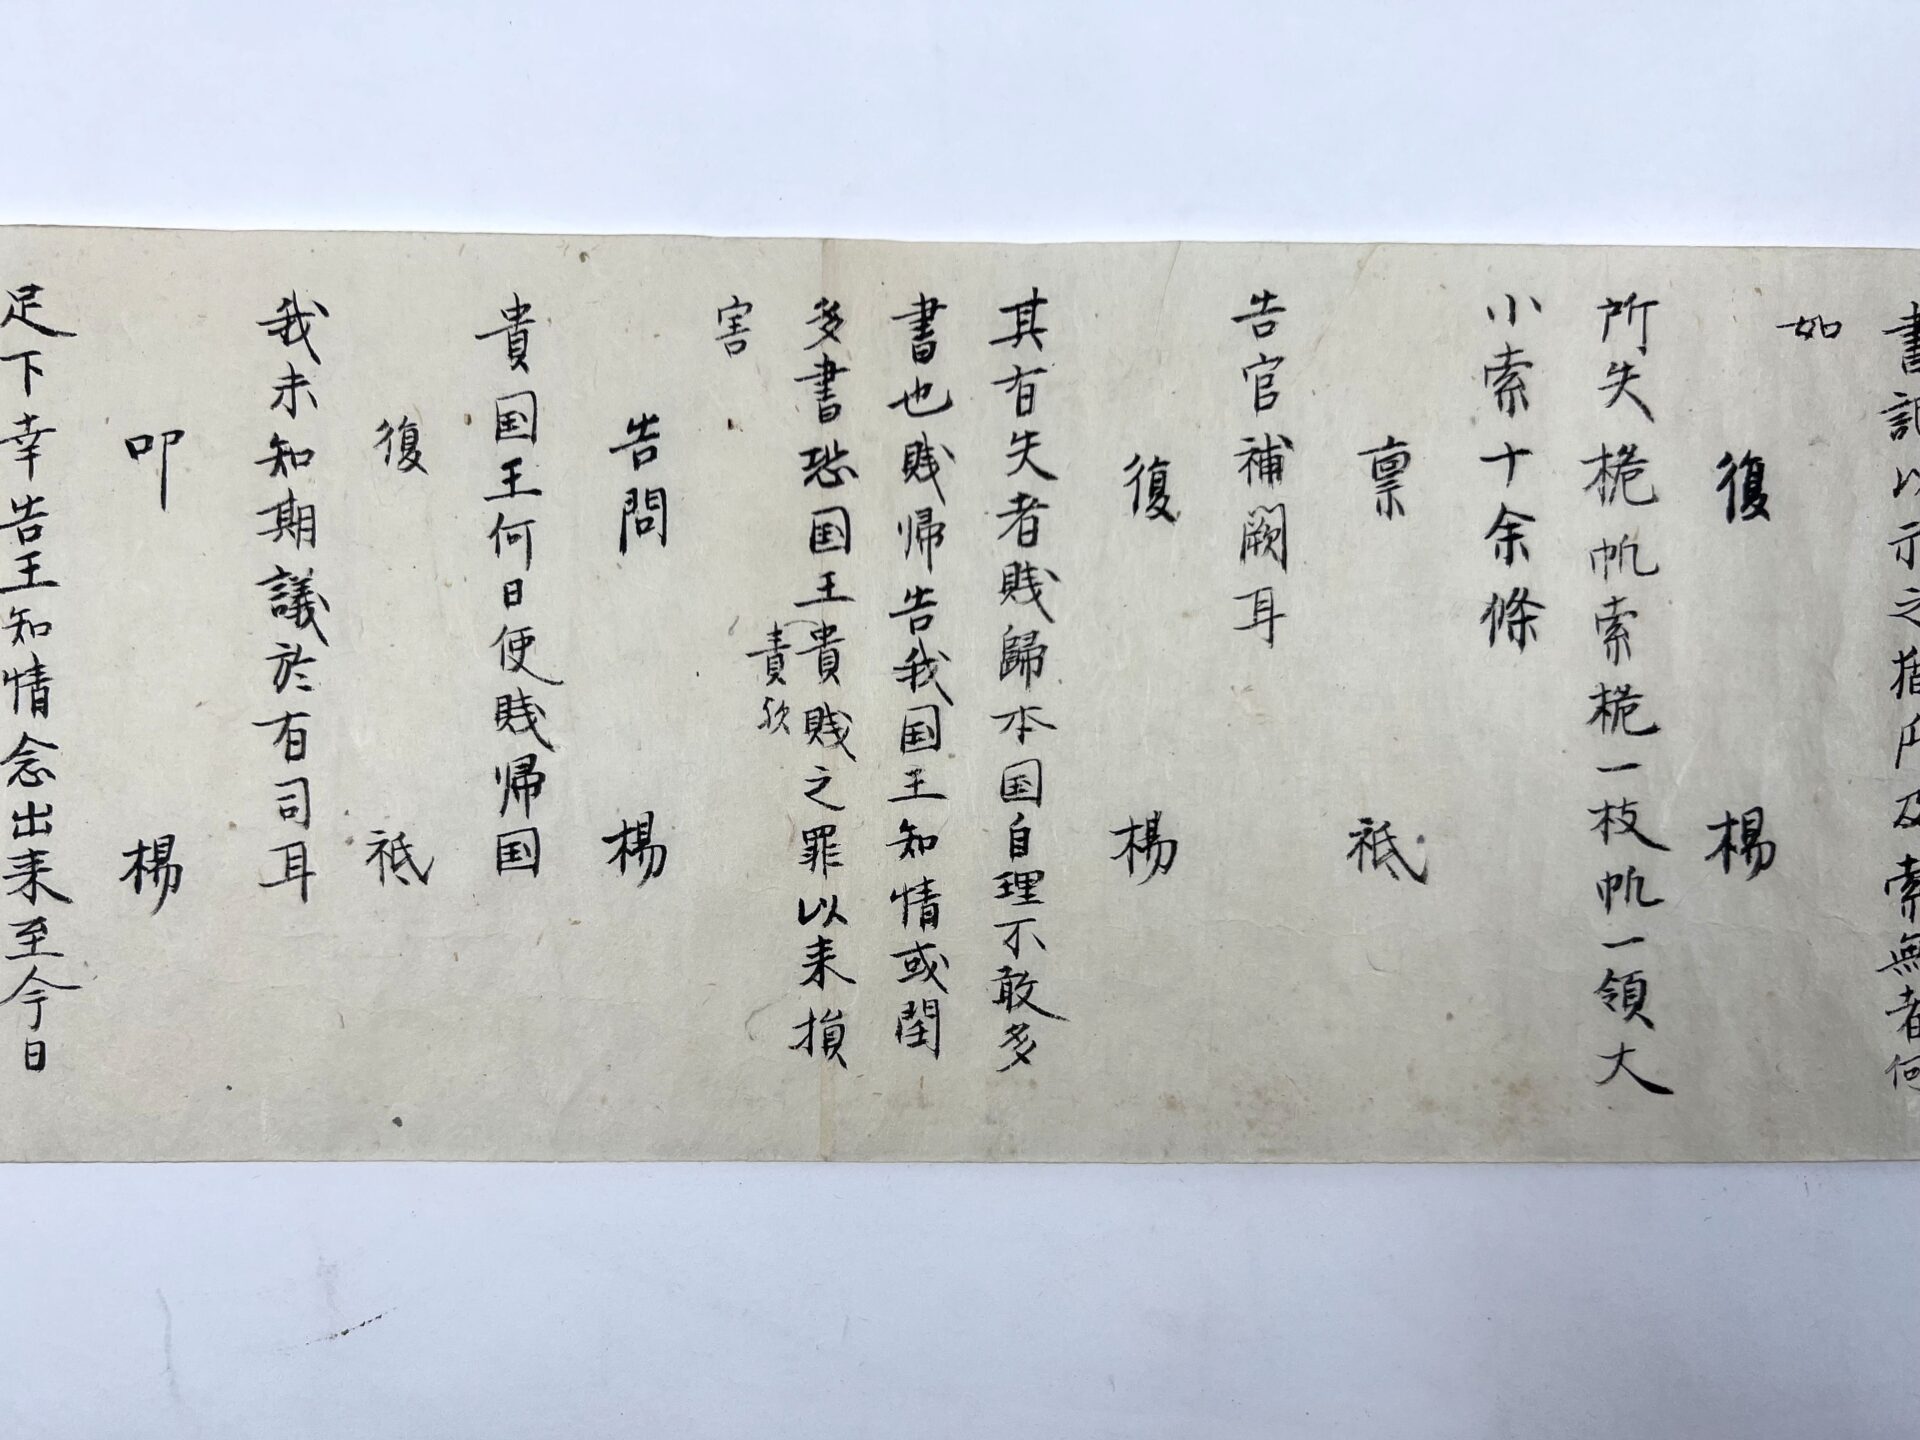 書記以示之猶
索無者何
如
復 楊
所失桅帆索桅一枝帆一領大
小索十余條
稟 祗
告官補闕耳
復 楊
其有失者賎歸本国自理不敢多
書也賎帰告我国王知情或閏
多書恐国王貴賎之罪以来損
責欤
害
告問 楊
貴国王何日便賎帰国
復 祗
我未知期議於有司耳
叩 楊
足下幸告王知情念出来至今日